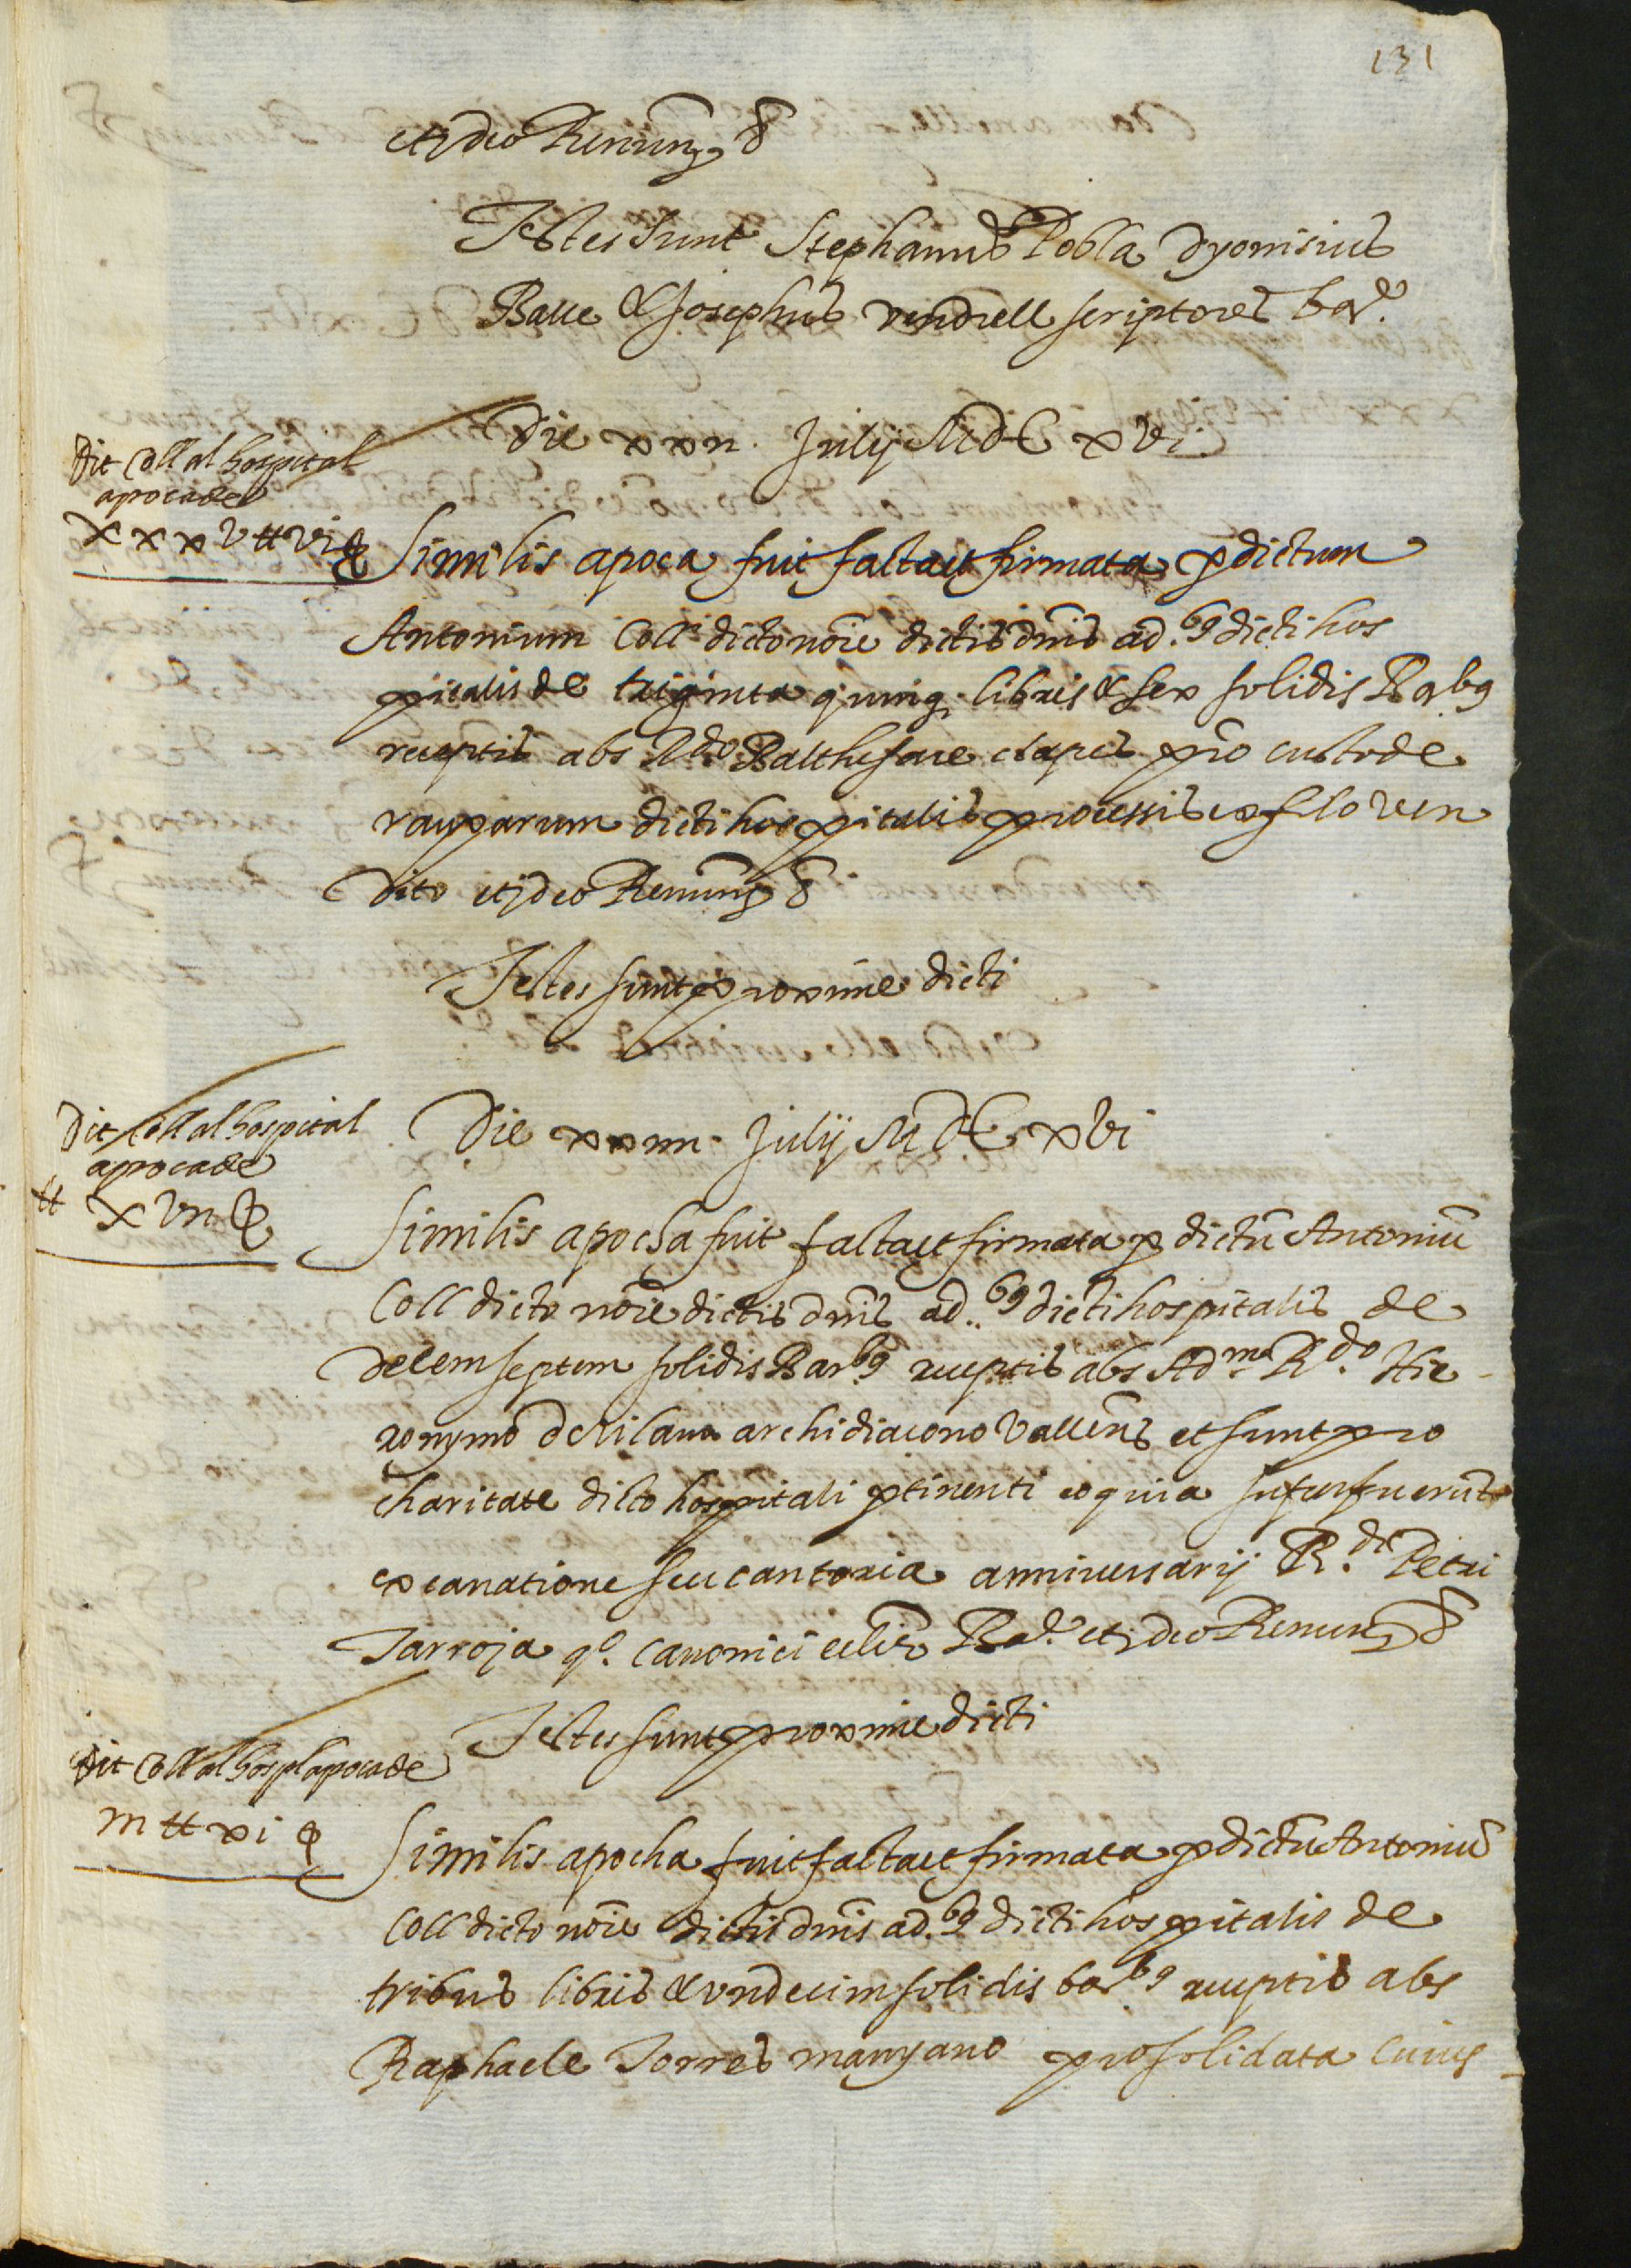 131
et ideo Renunꝫ &
Testes sunt Stephanus Pobla dyonisius
Balle & Josephus vendrell scriptores bar.
Die xxii. Julij MdC xvi.
Dit Coll al hospital
apoca de
xxxv ℔ vi ꝭ
Similis apoca fuit facta et firmata p dictum
Antonium Coll dicto noīe dictis dnīs ad.bꝰ dicti hos
pitalis de triginta quinqꝫ libris & sex solidis Barbꝰ
receptis abs Rdo Balthesare clapes pnō custode
rauparum dicti hospitalis processis ex filo ven
dito et ideo Renunꝫ &
Testes sunt proxime dicti
Dit Coll al hospital
apoca de
℔ xvii ꝭ
Die xxiiii. Julij MDC xvi
Similis apocha fuit facta et firmata p dictū Antoniū
Coll dicto noīe dictis dnīs ad.bꝰ dicti hospitalis de
decem septem solidis Barbꝰ receptis abs Adm Rdo. Hie
ronymo de Milana archidiacono Vallēns et sunt pro
charitate dicto hospitali ptinenti eo quia fuerūt
ex canatione seu cantoria anniversarij R.di Petri
Jarroja qo. canonici ecclīe Bar. et ideo Renunꝫ &
Testes sunt proxime dicti
Dit Coll al hospl apoca de
iii ℔ xi ꝭ
Similis apocha fuit facta et firmata p dictū Antoniū
Coll dicto noīe dictis dnīs ad.bꝰ dicti hospitalis de
tribus libris & undecim solidis barbꝰ receptis abs
Raphaele Torres manyano pro solidata cuius